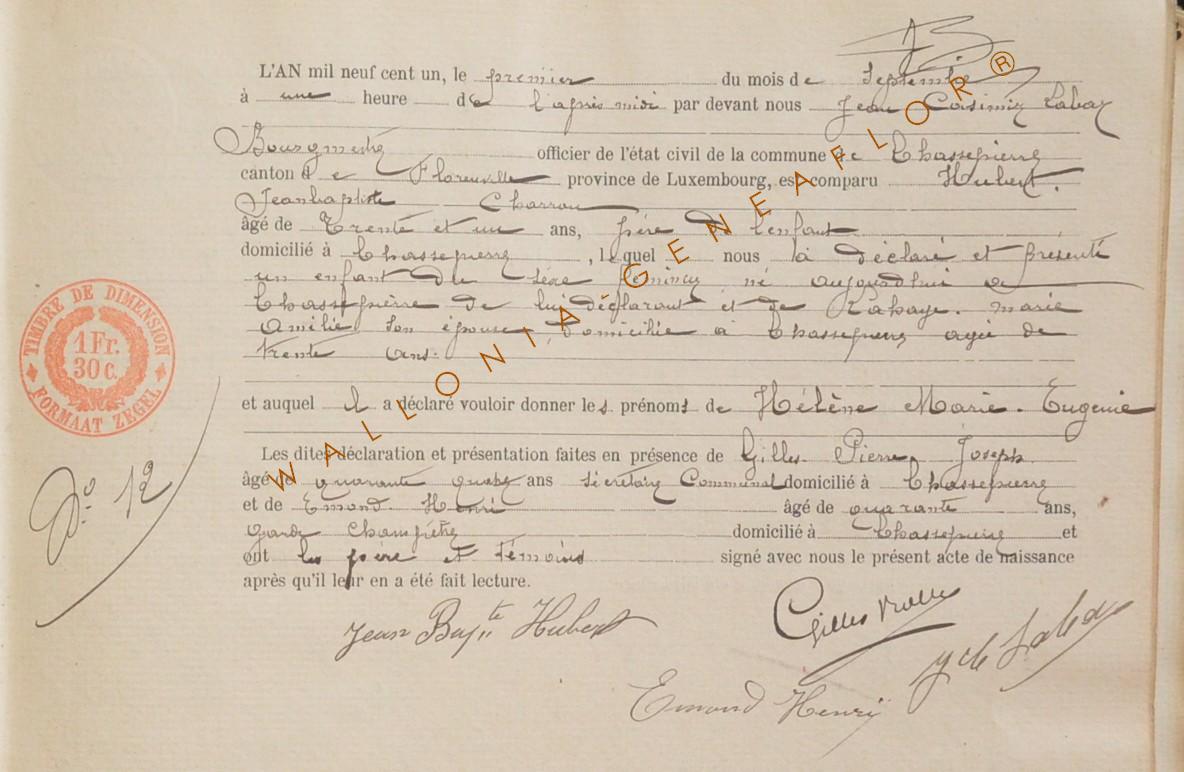 L'AN mil neuf cent un, le premier du mois de Septembre
à une heure de l'après midi par devant nous Jean Casimir Labay
Bourgmestre officier de l'état civil de la commune de Chassepierre
canton de Florenville province de Luxembourg, est comparu Hubert.
Jeanbaptiste Charron
âgé de Trente et un ans, père de l'enfant
domicilié à Chassepierre, lequel nous a déclaré et présenté
un enfant du sexe féminin né aujourdhui a
Chassepierre de lui déclarant et de Lahaye. marie
Amélie Son épouse, domicilie à Chassepierre agée de
trente ans.
et auquel il a déclaré vouloir donner les prénoms de Hélène Marie. Eugenie
Les dites déclaration et présentation faites en présence de Gilles. Pierre. Joseph
âgé de quarante quatre ans Secretaire Communal domicilié à Chassepierre
et de Emond. Henri âgé de quarante ans,
Garde Champêtre domicilié à Chassepierre et
ont les père et témoins signé avec nous le présent acte de naissance
après qu'il leur en a été fait lecture.
Jean Bapte Hubert
Gilles
Emond Henri
N° 12
TIMBRE DE DIMENSION
1 Fr.
30 c.
FORMAAT ZEGEL
WALLONIA-GENEAFLOR®